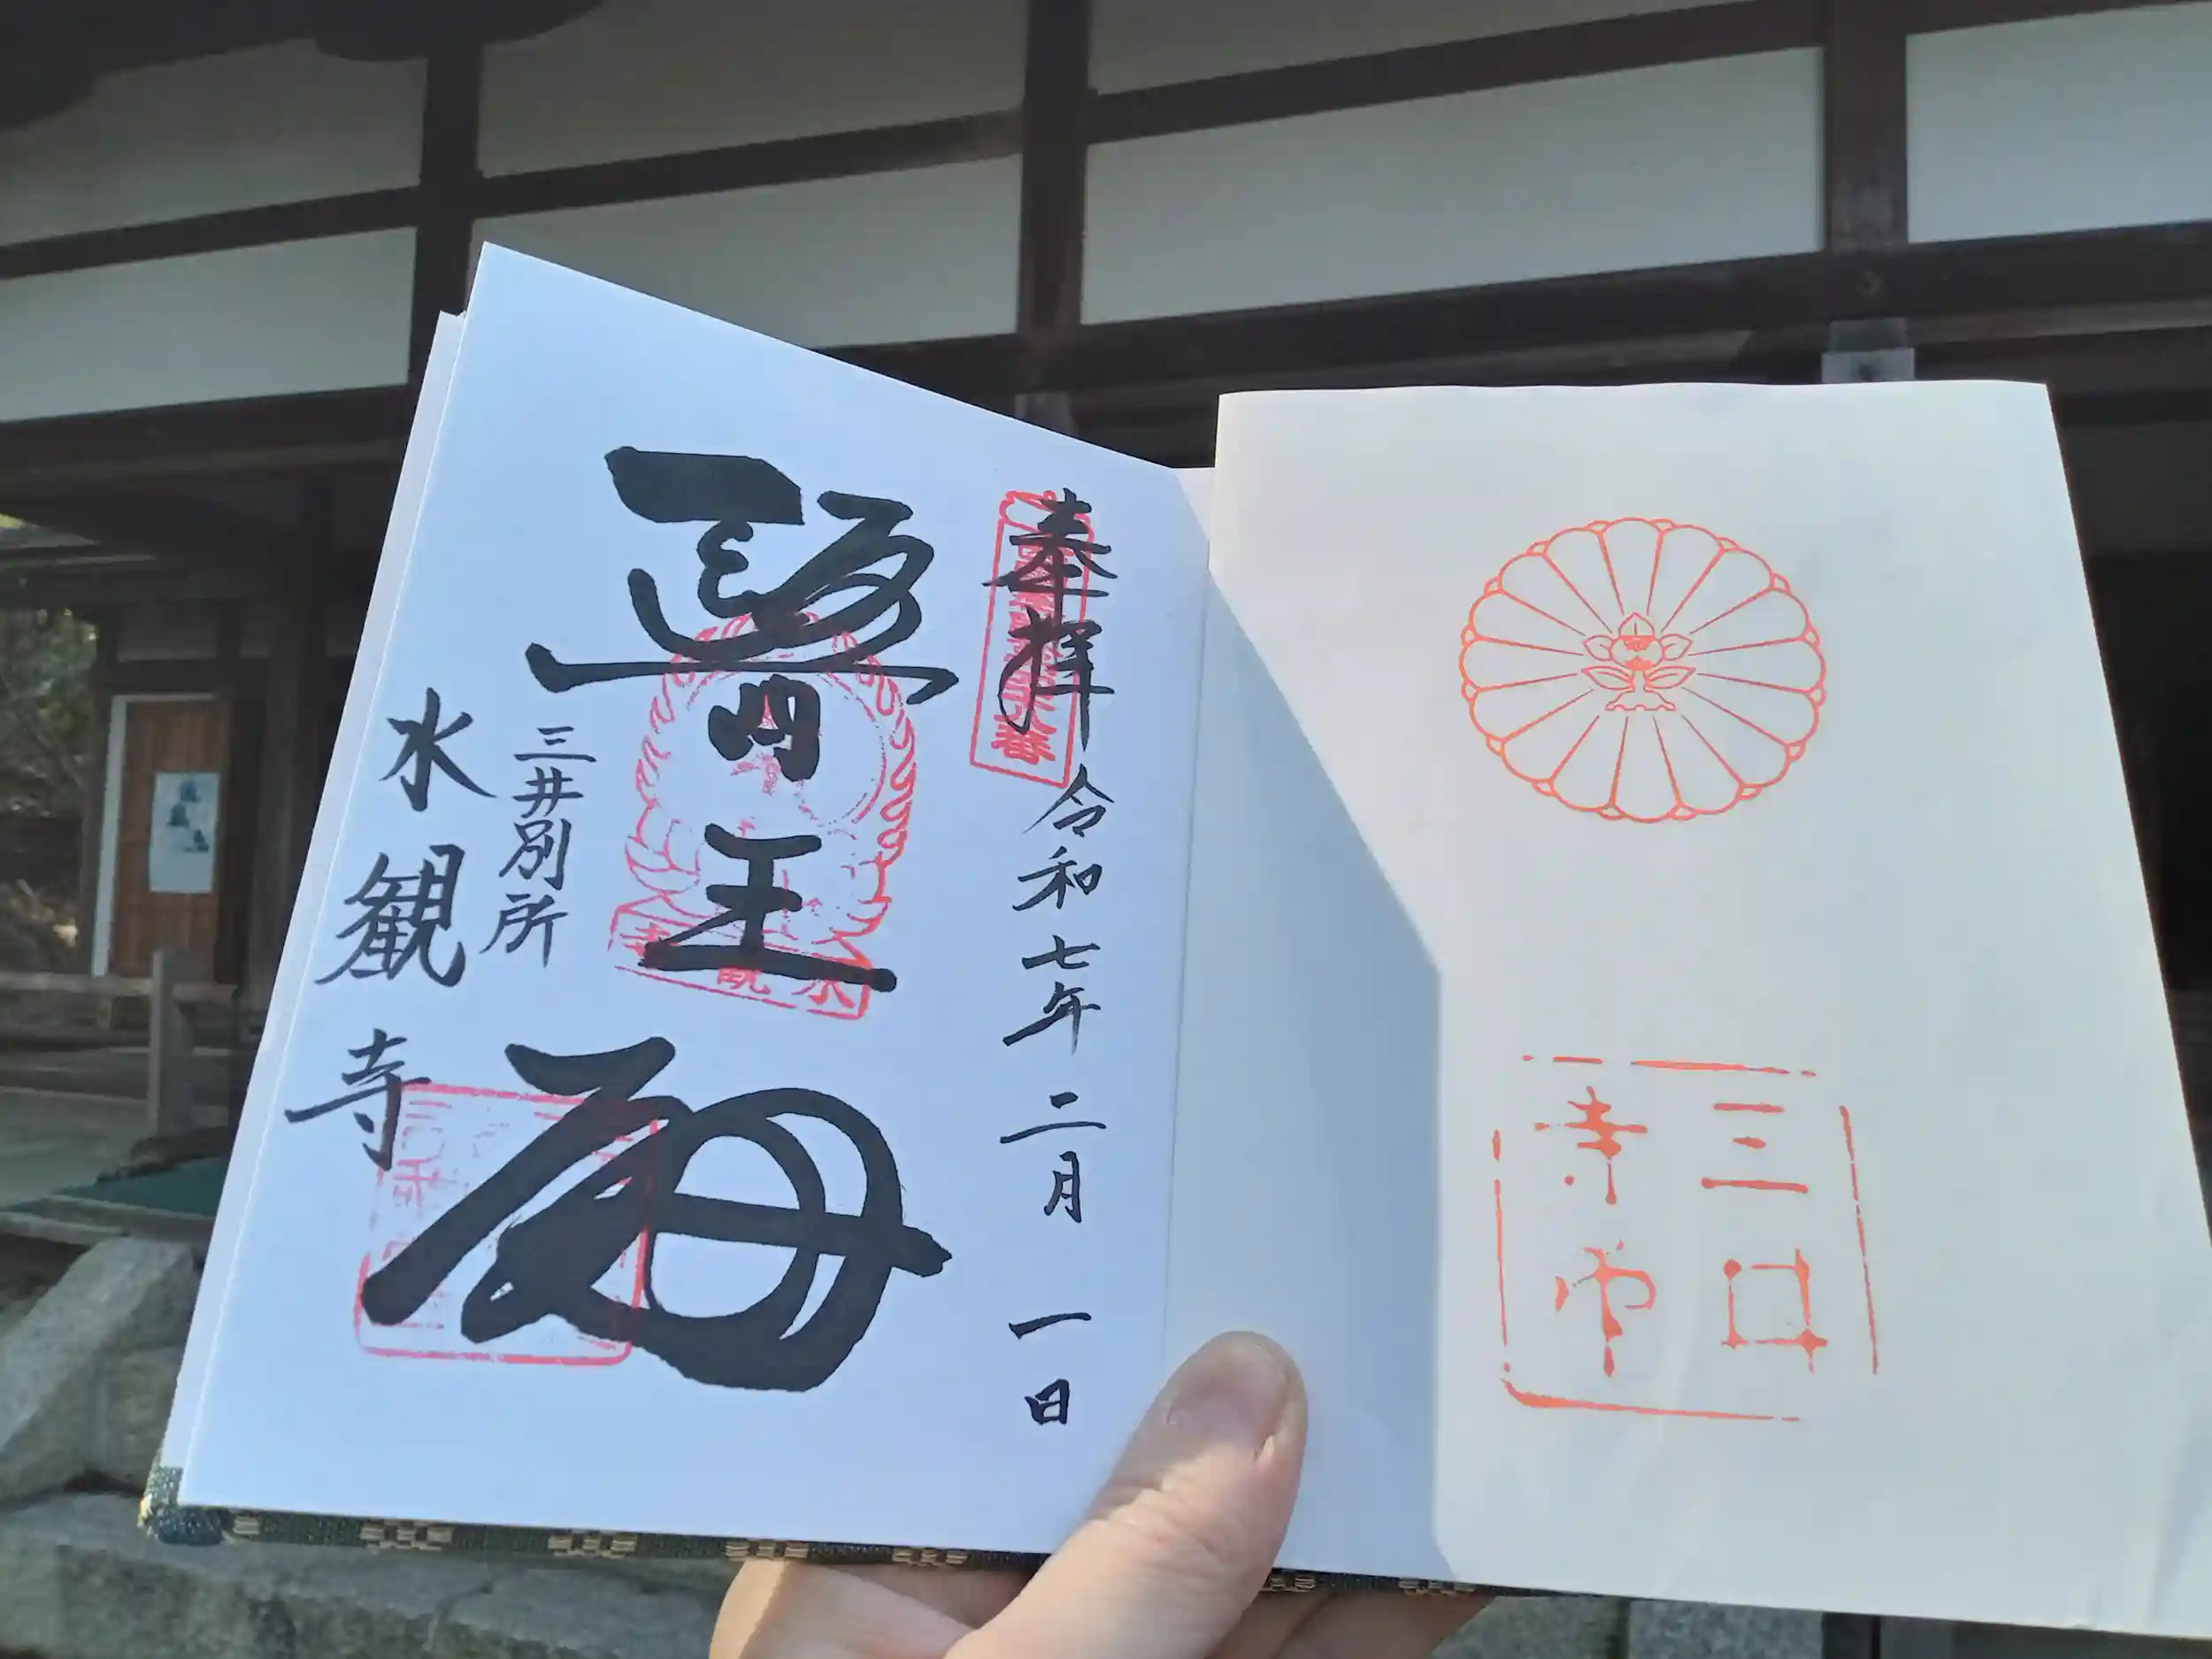 奉拝
令和七年二月一日
醫王
水観寺
三井別所
水観寺
三井寺印